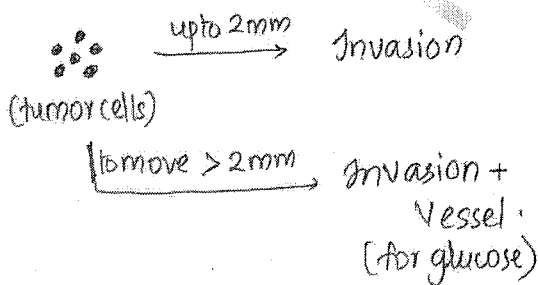 upto 2mm
Invasion
(tumor cells)
to move > 2mm
Invasion +
Vessel.
(for glucose)